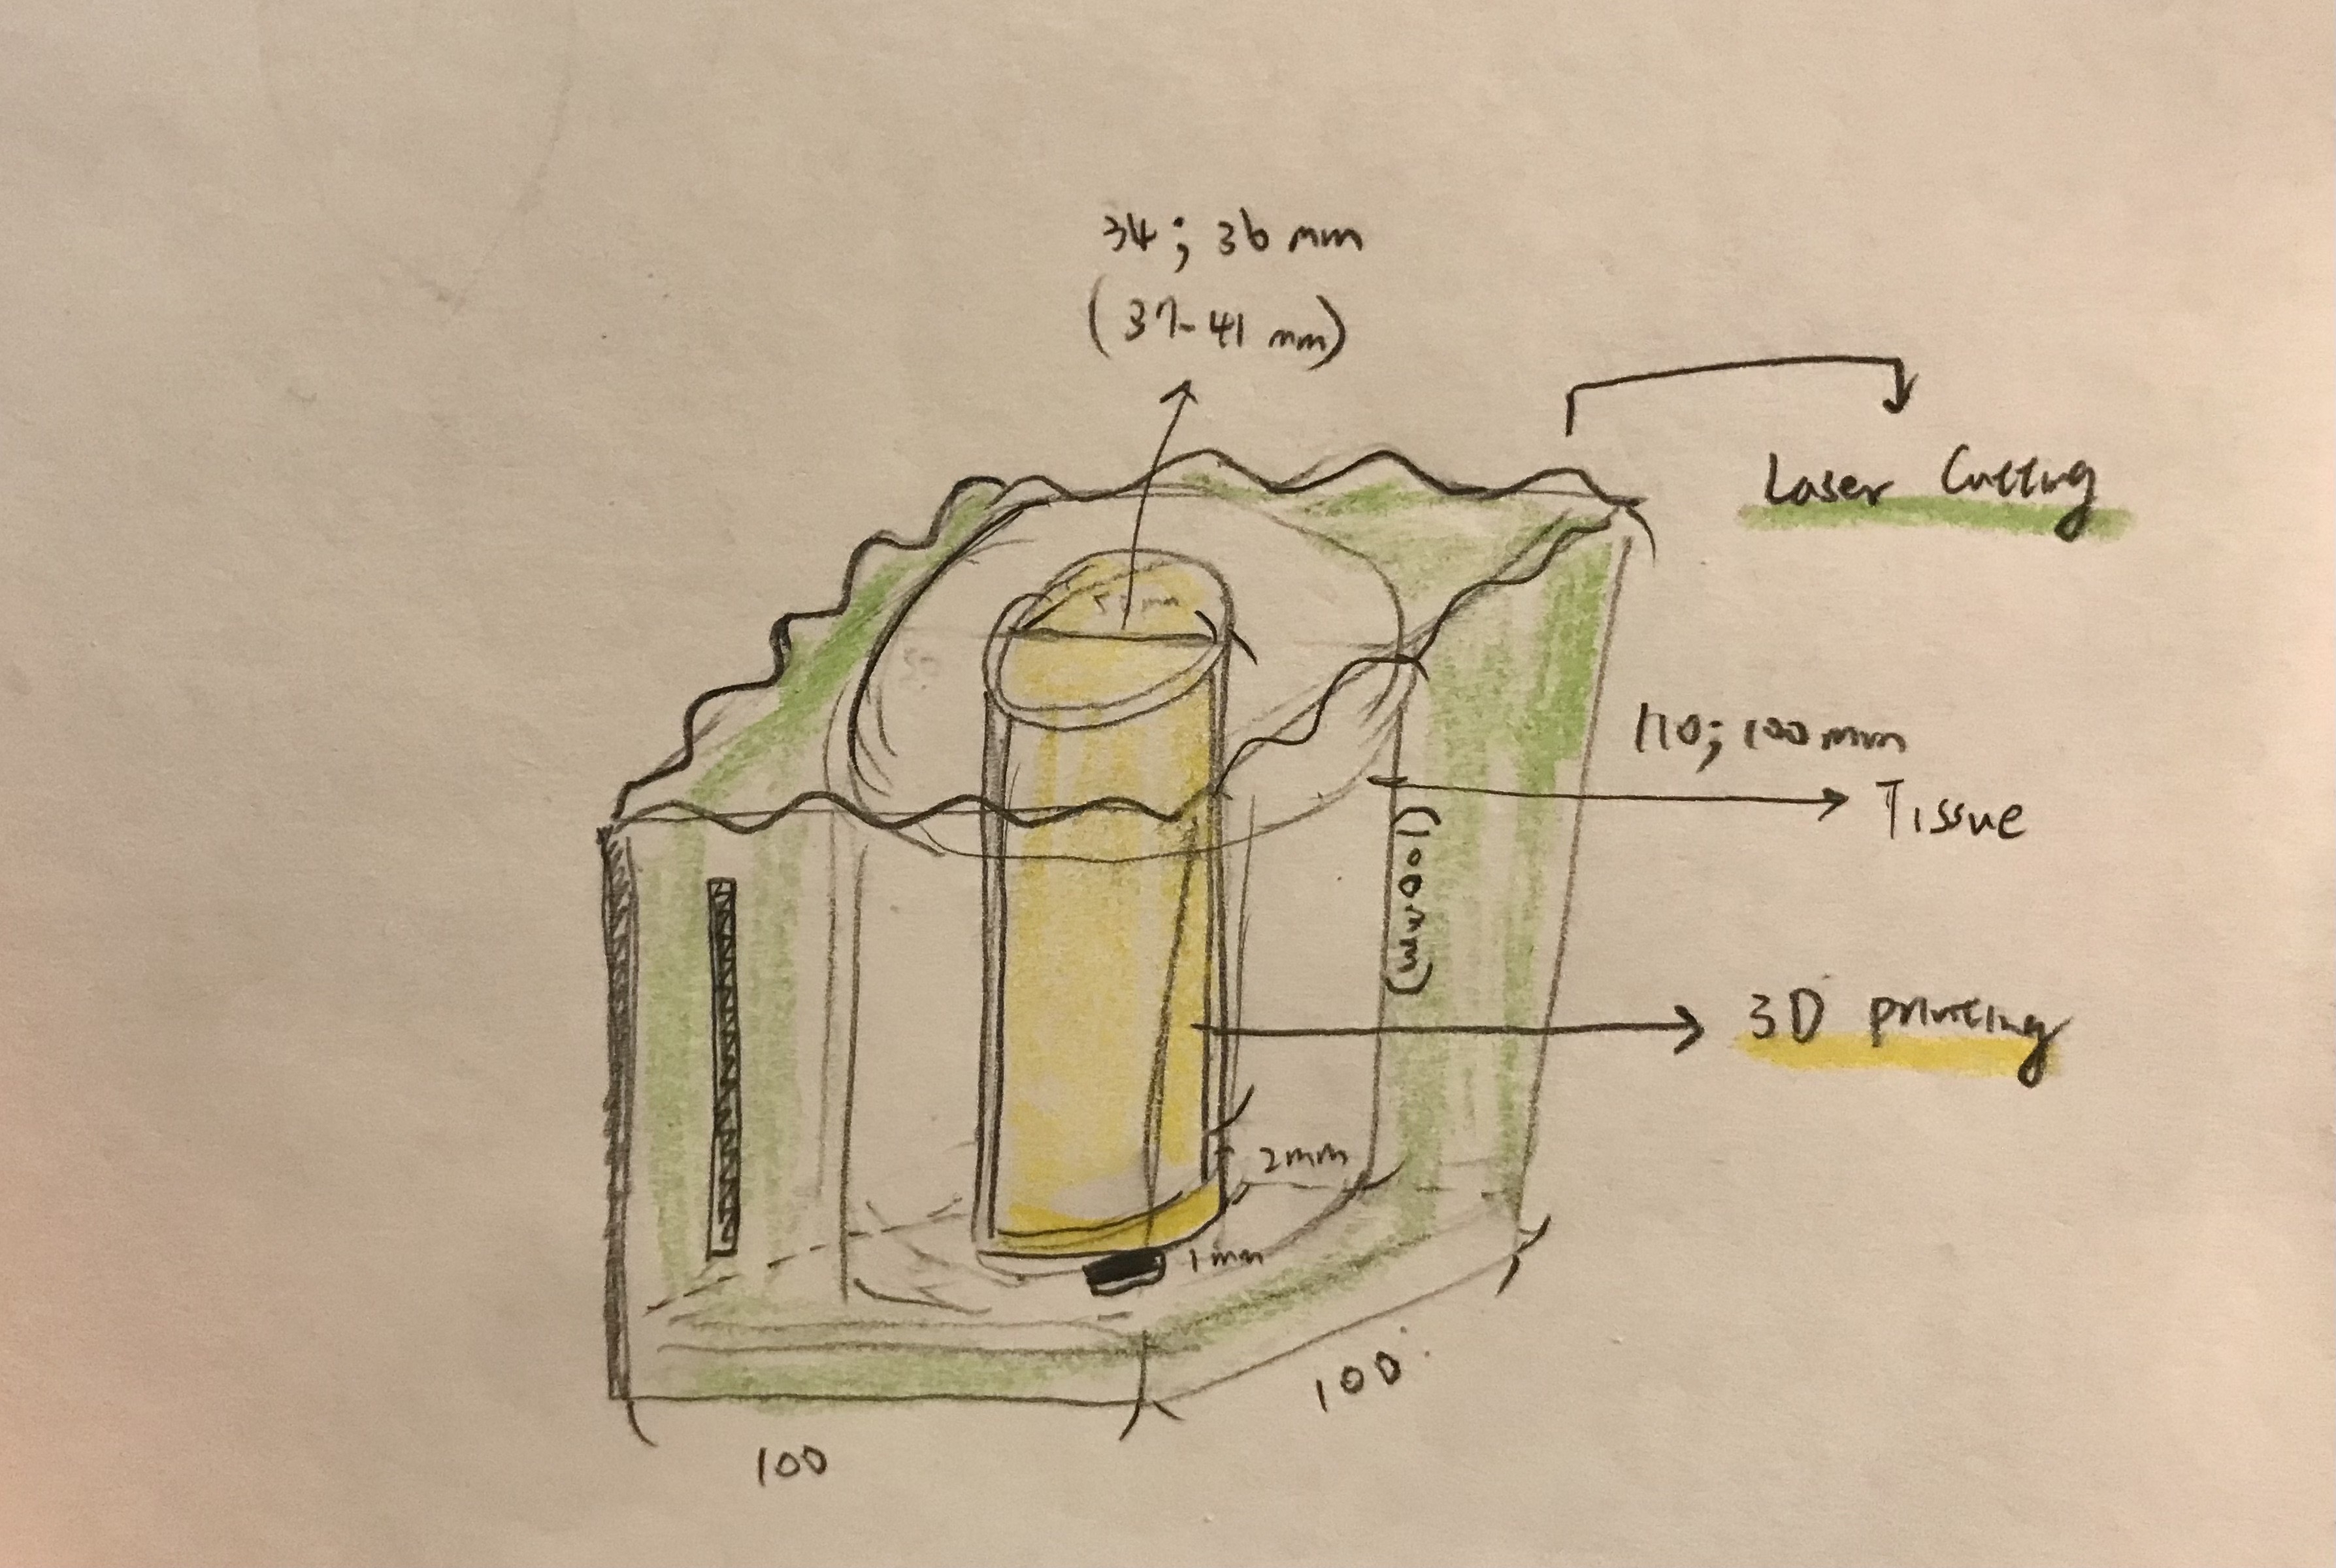 34; 36 mm
(37-41 mm)
Laser Cutting
110; 100mm
Tissue
(100mm)
3D printing
2mm
1mm
100
100